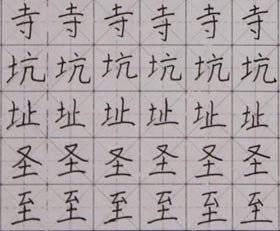 寺寺寺寺寺寺
坑坑坑坑坑坑
址址址址址址
圣圣圣圣圣圣
至至至至至至